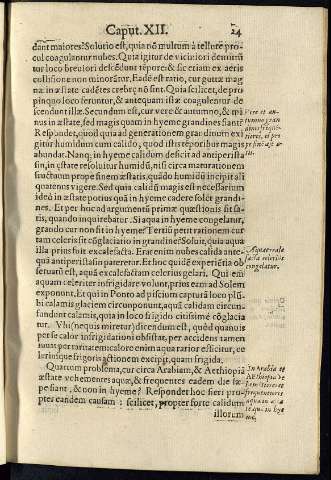 Caput. XII. 24
dant maiores? Solutio est, quia nõ multum à tellure pro
cul coagulantur nubes. Quia igitur de viciniori
loco breuiori descẽdunt tẽpore & sic etiam ex aeris
collisione non minorãtur. Eadẽ est ratio, cur guttæ mag
næ in æstate cadẽtes crebrò nõ sint. Quia scilicet, de pro
pinquo loco feruntur, & antequam istæ coagulentur de-
scendunt illæ. Secundum est, cur vere & autumno, & mi
nus in æstate, sed magis quam in hyeme grandines fiant?
Respondet, quod quia ad generationem grandinum exi
gitur humidum cum calido, quod istis tẽporibus magis
abundat. Nanq; in hyeme calidum deficit ad antiperista
sin, in æstate resoluitur humidũ, nisi circa maturationem
fructuum prope finem æstatis, quãdo humidũ incipit ali
quatenus vigere. Sed quia calidũ magis est necessarium
ideò in æstate potius quã in hyeme cadere solẽt grandi-
nes. Et per hoc ad argumentũ primæ quæstionis sit sa-
tis, quando inquirebatur. Si aqua in hyeme congelatur,
grando cur non fit in hyeme? Tertiũ petit rationem cur
tam celeris fit cõglaciatio in grandine? Soluit, quia aqua
illa prius fuit excalefacta. Erat enim nubes calida ante
quã antiperistasi pateretur. Et hoc quidẽ experiẽtia ob
seruatũ est, aquã excalefactam celerius gelari. Qui enim
aquam celeriter infrigidare volunt, prius eam ad Solem
exponunt. Et qui in Ponto ad piscium capturã loco plũ-
bi calamis glaciem circunponunt, aquã calidam circun-
fundunt calamis, quia in loco frigido citissimè cõglacia
tur. Vbi (nequis miretur) dicendum est, quòd quamuis
per se calor infrigidationi obsistat, per accidens tamen
iuuat per tormatione calore enim aqua rarior efficitur, ce
leriusque frigoris actionem excipit, quam frigida.
Quartum problema, cur circa Arabiam, & Aethiopiã
æstate vehementes aquæ, & frequentes eadem die sæ-
pe fiant, & non in hyeme? Respondet hoc fieri pro-
pter eandem causam: scilicet, propter forte calidum
illorum
Vere et au-
tumno gran
dines frequẽ
tiores, et pro
pe finẽ æsta
tis.
Aqua cale
facta celerius
congelatur.
In Arabia et
AEthiopia
æstate
frequentiores
aquæ in æsta
te quã in hye
me.